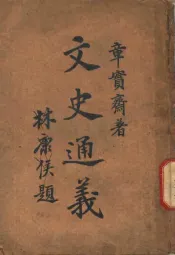 章實齋著
文史通義
林康侯題